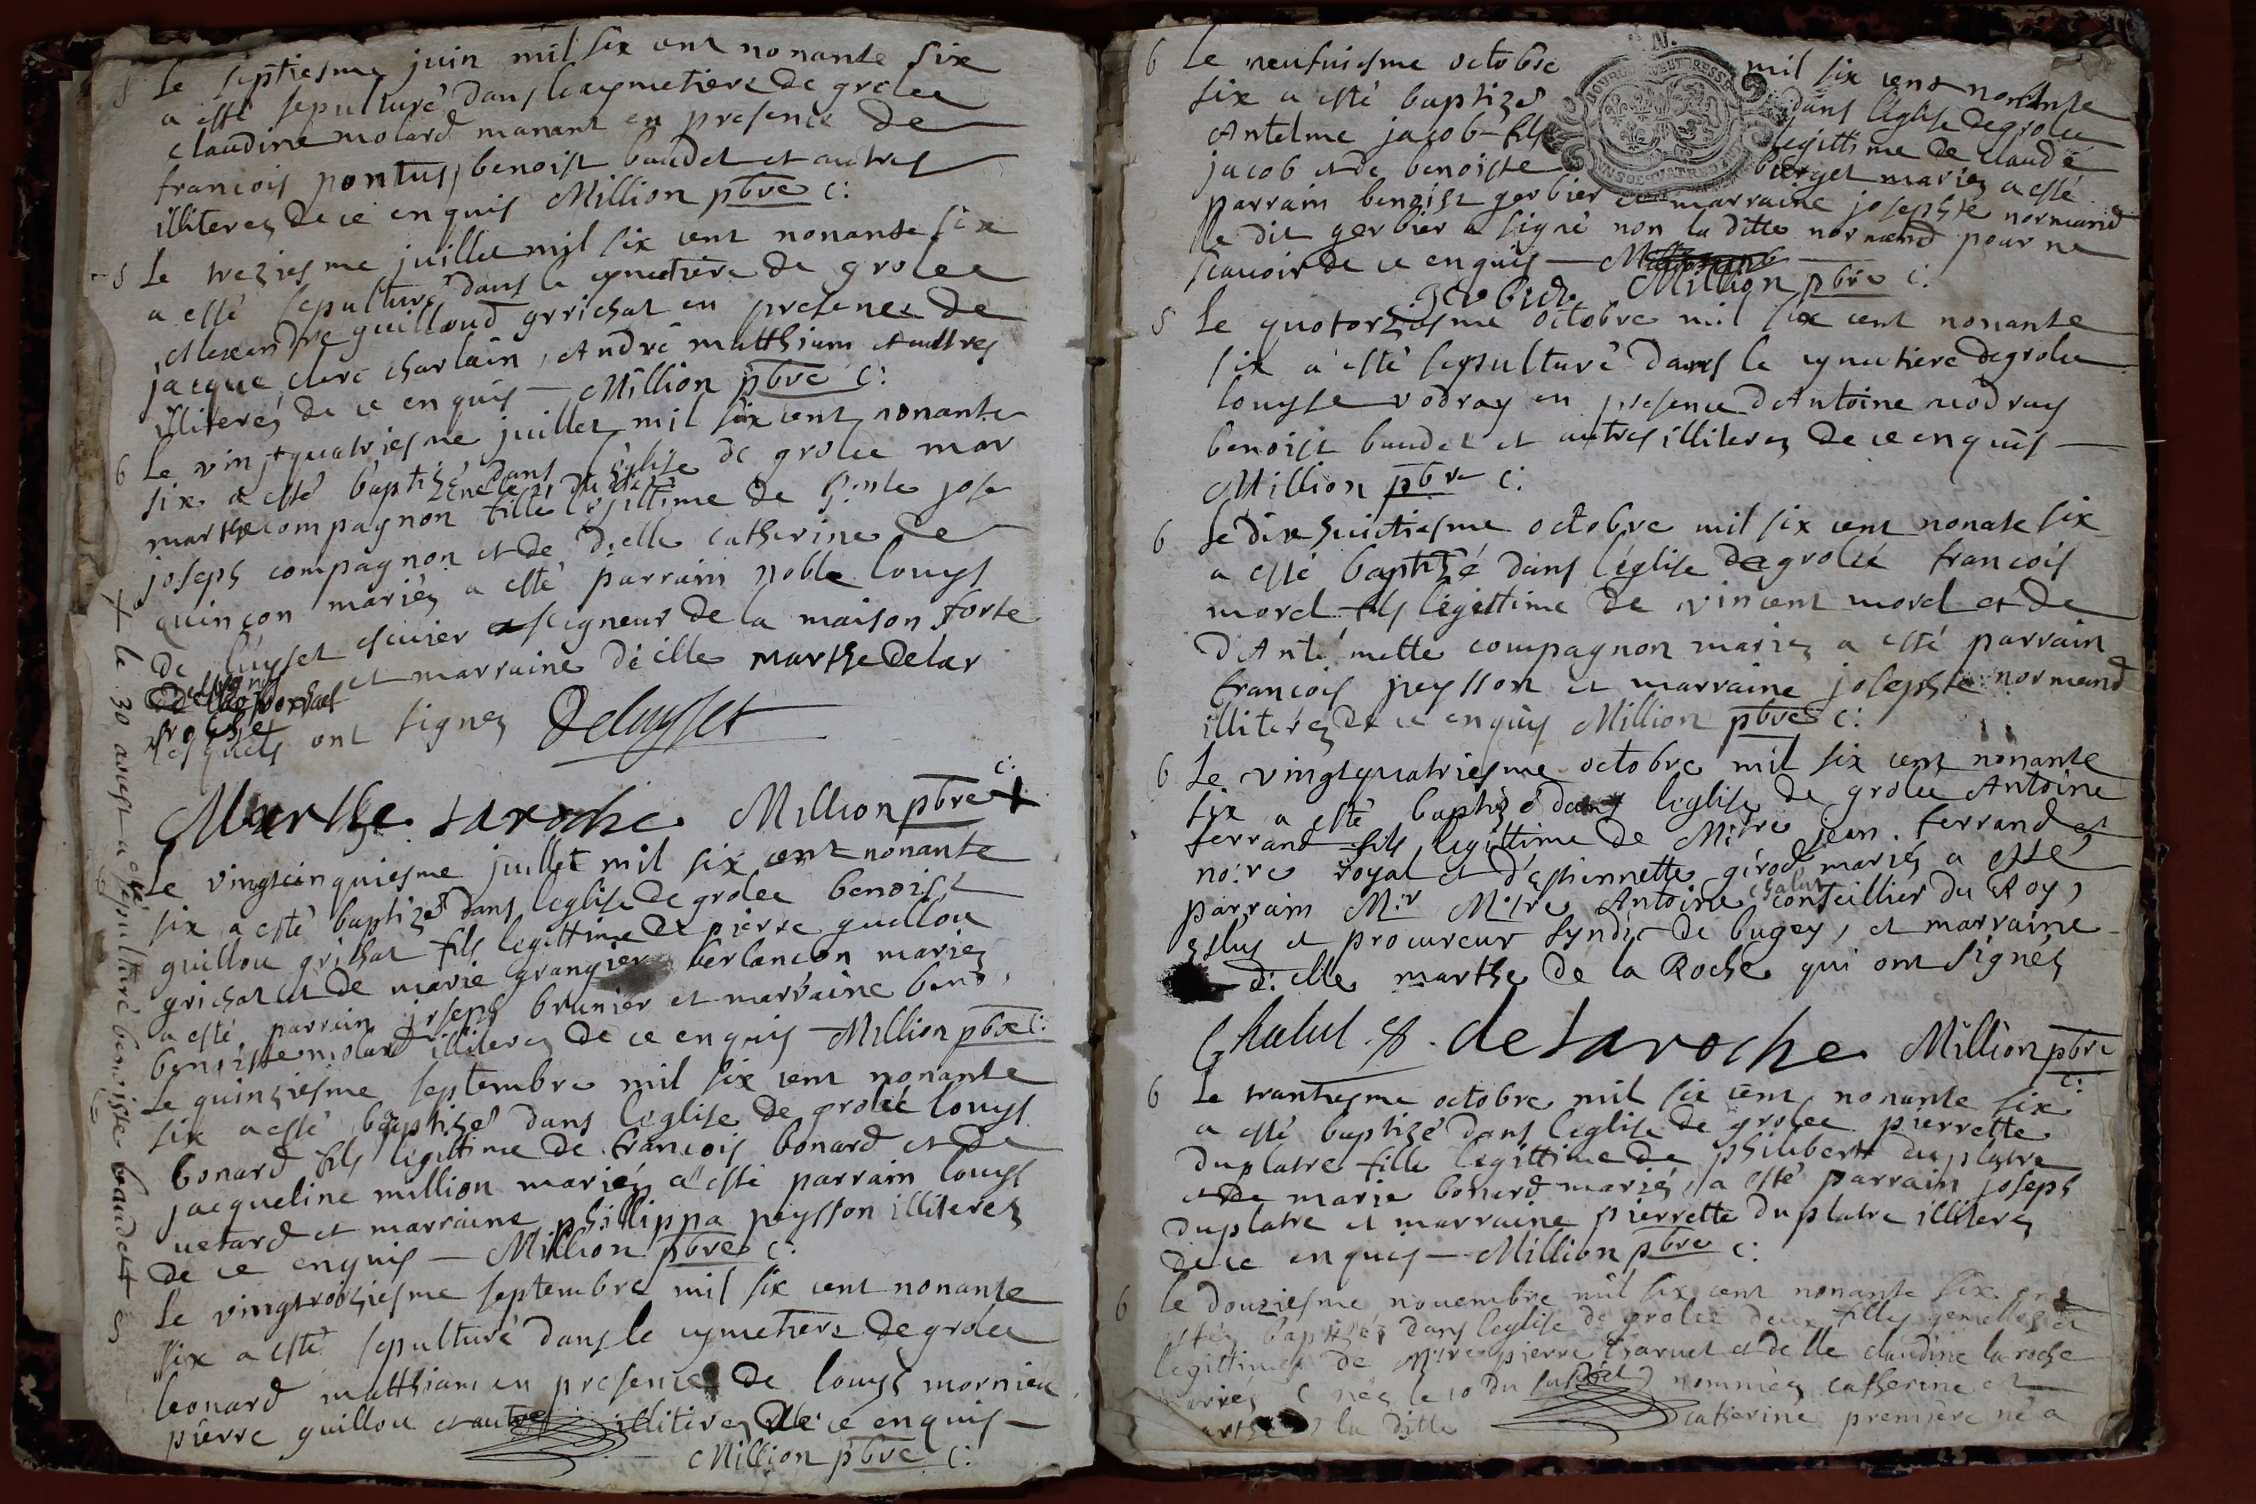 S Le septiesme juin mil six cent nonante six
a esté sepulturé dans le cymetiere de grolee
claudine molard manant en presence de
francois pontus, benoist baudet et autres
illiterez de ce enquis Million pbre c:
S Le treziesme juillet mil six cent nonante six
a esté sepulturé dans le cymetiere de grolee
Alexandre guilloud grichat en presence de
jacque clerc charlain, André matthian et aultres
illiterez de ce enquis — Million pbre c:
6 Le vingtquatriesme juillet mil six cent nonante
six a esté baptizé dans l'eglise de grolee mar
marthe compagnon fille legittime de jose
joseph compagnon et de dielle catherine de
quinçon mariez a esté parrain noble louys
de luyset escuier seigneur de la maison forte
et marraine d'elle marthe delar
roche
lesquels ont signez Deluysset
Marthe laroche Million pbre c: +
Le vingtcinquiesme juillet mil six cent nonante
six a esté baptizé dans l'eglise de grolee benoist
guillou grichat fils legittime de pierre guillou
grichat et de marie grangier berlancon mariez
a esté parrain joseph brunier et marraine beno
benoiste molard illiterez de ce enquis — Million pbre c:
Le quinziesme septembre mil six cent nonante
six a esté baptizé dans l'eglise de grolee louys
bonard fils legittime de francois bonard et de
jacqueline million mariez a esté parrain louys
uetard et marraine phillippa peysson illiterez
de ce enquis — Million pbre c:
Le vingtroiziesme septembre mil six cent nonante
six a esté sepulturé dans le cymetiere de grolee
leonard matthian en presence de louys mornieu
pierre guillou et autres illiterez de ce enquis —
Million pbre c:
+ le 30 aoust a esté sepulturé benoiste baudet +
6 Le neufuiesme octobre mil six cent nonante
six a esté baptizé dans l'eglise de grolee
Antelme jacob fils legittime de claude
jacob et de benoiste berget mariez a esté
parrain benoist gerbier et marraine josephte normand
le dit gerbier a signé non la ditte normand pour ne
scauoir de ce enquis —
Gerbier Million pbre c:
S Le quatorziesme octobre mil six cent nonante
six a esté sepulturé dans le cymetiere de grolee
louyse vodray en presence d'Antoine uodray
benoist baudet et autres illiterez de ce enquis —
Million pbre c:
6 Le dixhuictiesme octobre mil six cent nonate six
a esté baptizé dans l'église de grolée francois
morel fils légittime de vincent morel et de
d'Anté mette compagnon mariez a esté parrain
francois peysson et marraine josephte normand
illiterez de ce enquis Million pbre c:
6 Le vingtquatriesme octobre mil six cent nonante
six a esté baptizé dans l'eglise de grolee Antoine
ferrand fils legittime de Mitre jean ferrand et
no:re royal et d'estiennette girod mariés a esté
parrain M:r M:tre Antoine chalut conseillier du Roy,
eslus et procureur syndic de bugey, et marraine
d:elle marthe de la Roche qui ont signéz
Chalut delaroche Million pbre c:
6 Le trantiesme octobre mil six cent nonante six
a esté baptizé dans l'eglise de grolee pierrette
duplatre fille legittime de philibert duplatre
et de marie bonard mariés, a esté parrain joseph
duplatre et marraine pierrette duplatre illiterez
de ce enquis — Million pbre c:
6 le douziesme nouembre mil six cent nonante six ont
estéz baptizéz dans l'eglise de grolée deux filles gemelles et
legittimes de Mtre pierre charuet et delle claudine la roche
mariés (néz le 10 du susdit) nommées catherine et
marthe la ditte catherine premiere né a